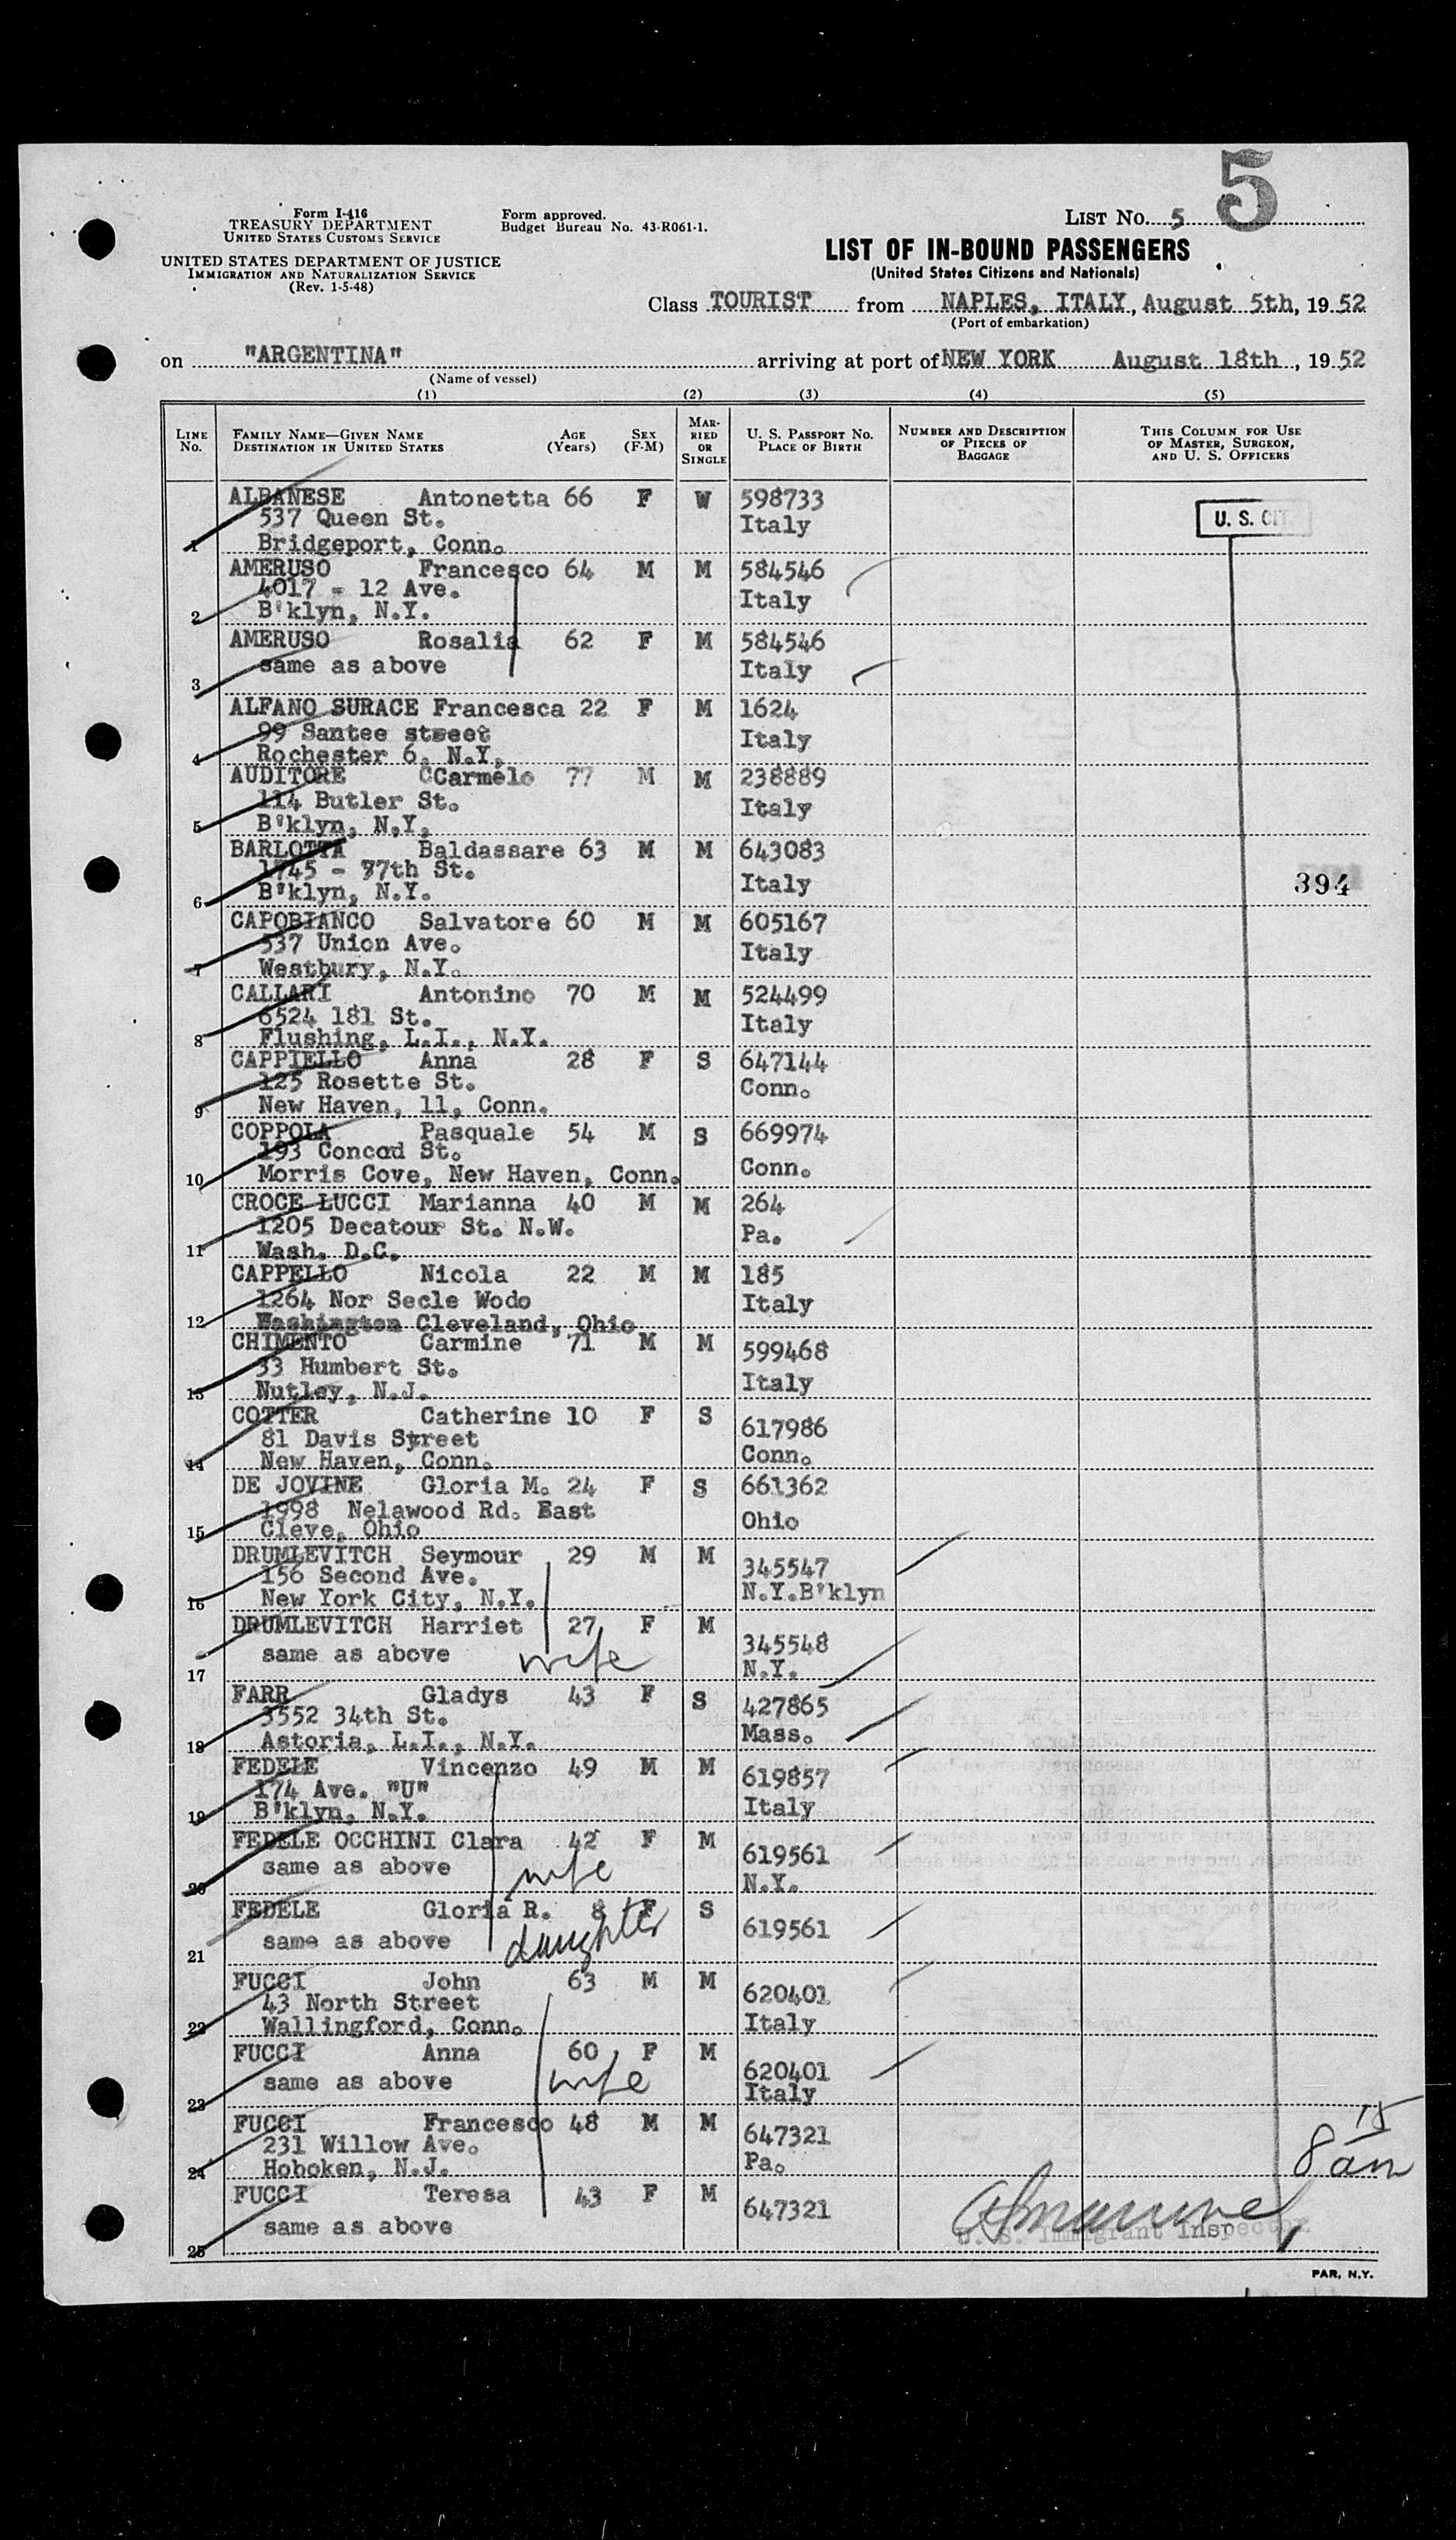 5
Form I-416
TREASURY DEPARTMENT
UNITED STATES CUSTOMS SERVICE
UNITED STATES DEPARTMENT OF JUSTICE
IMMIGRATION AND NATURALIZATION SERVICE
(Rev. 1-5-48)
Form approved.
Budget Bureau No. 43-R061-1.
LIST No. 5
LIST OF IN-BOUND PASSENGERS
(United States Citizens and Nationals)
Class TOURIST from NAPLES, ITALY, August 5th, 19 52
(Port of embarkation)
on "ARGENTINA" arriving at port of NEW YORK August 18th, 19 52
(Name of vessel)
(1) (2) (3) (4) (5)
LINE No. FAMILY NAME—GIVEN NAME DESTINATION IN UNITED STATES AGE (Years) SEX (F-M) MARRIED OR SINGLE U. S. PASSPORT NO. PLACE OF BIRTH NUMBER AND DESCRIPTION OF PIECES OF BAGGAGE THIS COLUMN FOR USE OF MASTER, SURGEON, AND U. S. OFFICERS
ALBANESE Antonetta 66 F W 598733
537 Queen St. Italy U. S. CIT.
1 Bridgeport, Conn.
AMERUSO Francesco 64 M M 584546
4017 - 12 Ave. Italy
2 B'klyn, N.Y.
AMERUSO Rosalia 62 F M 584546
same as above Italy
3
ALFANO SURACE Francesca 22 F M 1624
99 Santee street Italy
4 Rochester 6, N.Y.
AUDITORE CCarmelo 77 M M 238889
114 Butler St. Italy
5 B'klyn, N.Y.
BARLOTTA Baldassare 63 M M 643083
1745 - 77th St. Italy 394
6 B'klyn, N.Y.
CAPOBIANCO Salvatore 60 M M 605167
537 Union Ave. Italy
7 Westbury, N.Y.
CALLARI Antonino 70 M M 524499
6524 181 St. Italy
8 Flushing, L.I., N.Y.
CAPPIELLO Anna 28 F S 647144
125 Rosette St. Conn.
9 New Haven, 11, Conn.
COPPOLA Pasquale 54 M S 669974
193 Concod St. Conn.
10 Morris Cove, New Haven, Conn.
CROCE LUCCI Marianna 40 M M 264
1205 Decatour St. N.W. Pa.
11 Wash. D.C.
CAPPELLO Nicola 22 M M 185
1264 Nor Secle Wodo Italy
12 Washington Cleveland, Ohio
CHIMENTO Carmine 71 M M 599468
33 Humbert St. Italy
13 Nutley, N.J.
COTTER Catherine 10 F S 617986
81 Davis Street Conn.
14 New Haven, Conn.
DE JOVINE Gloria M. 24 F S 661362
1998 Nelawood Rd. East Ohio
15 Cleve, Ohio
DRUMLEVITCH Seymour 29 M M 345547
156 Second Ave. N.Y.B'klyn
16 New York City, N.Y.
DRUMLEVITCH Harriet 27 F M 345548
same as above wife N.Y.
17
FARR Gladys 43 F S 427865
3552 34th St. Mass.
18 Astoria, L.I., N.Y.
FEDELE Vincenzo 49 M M 619857
174 Ave. "U" Italy
19 B'klyn, N.Y.
FEDELE OCCHINI Clara 42 F M 619561
same as above wife N.Y.
20
FEDELE Gloria R. 8 F S 619561
same as above daughter
21
FUCCI John 63 M M 620401
43 North Street Italy
22 Wallingford, Conn.
FUCCI Anna 60 F M 620401
same as above wife Italy
23
FUCCI Francesco 48 M M 647321
231 Willow Ave. Pa. 8 15 am
24 Hoboken, N.J.
FUCCI Teresa 43 F M 647321
same as above U. S. Immigrant Inspector
25
PAR. N.Y.